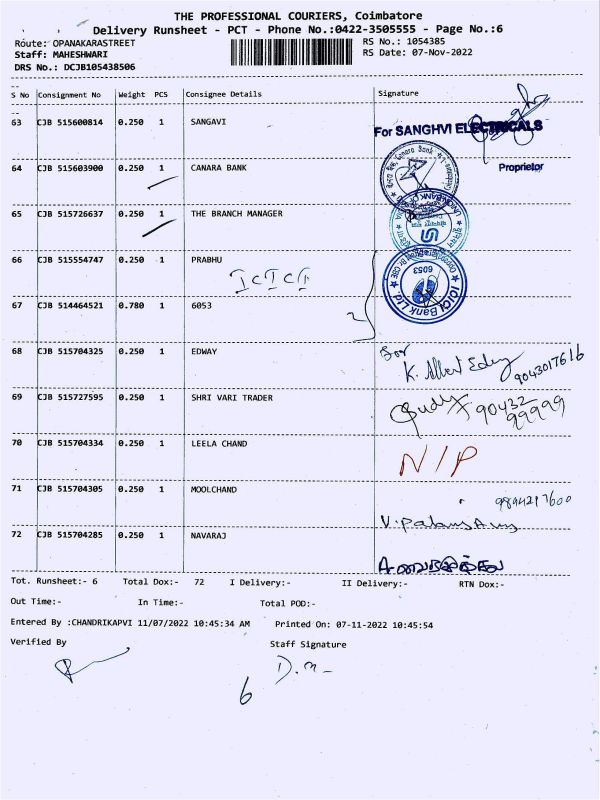 THE PROFESSIONAL COURIERS, Coimbatore
Delivery Runsheet - PCT - Phone No.:0422-3505555 - Page No.:6
Route: OPANAKARASTREET RS No.: 1054385
Staff: MAHESHWARI RS Date: 07-Nov-2022
DRS No.: DCJB105438506
S No Consignment No Weight PCS Consignee Details Signature
63 CJB 515600814 0.250 1 SANGAVI
For SANGHVI ELECTRICALS
Proprietor
64 CJB 515603900 0.250 1 CANARA BANK
65 CJB 515726637 0.250 1 THE BRANCH MANAGER
66 CJB 515554747 0.250 1 PRABHU
ICICI
ICICI Bank Ltd
6053
67 CJB 514464521 0.780 1 6053
68 CJB 515704325 0.250 1 EDWAY
for
K. Albert 9043017616
69 CJB 515727595 0.250 1 SHRI VARI TRADER
90432
99999
70 CJB 515704334 0.250 1 LEELA CHAND N/P
71 CJB 515704305 0.250 1 MOOLCHAND
9894217600
72 CJB 515704285 0.250 1 NAVARAJ
Tot. Runsheet:- 6 Total Dox:- 72 I Delivery:- II Delivery:- RTN Dox:-
Out Time:- In Time:- Total POD:-
Entered By :CHANDRIKAPVI 11/07/2022 10:45:34 AM Printed On: 07-11-2022 10:45:54
Verified By Staff Signature
6